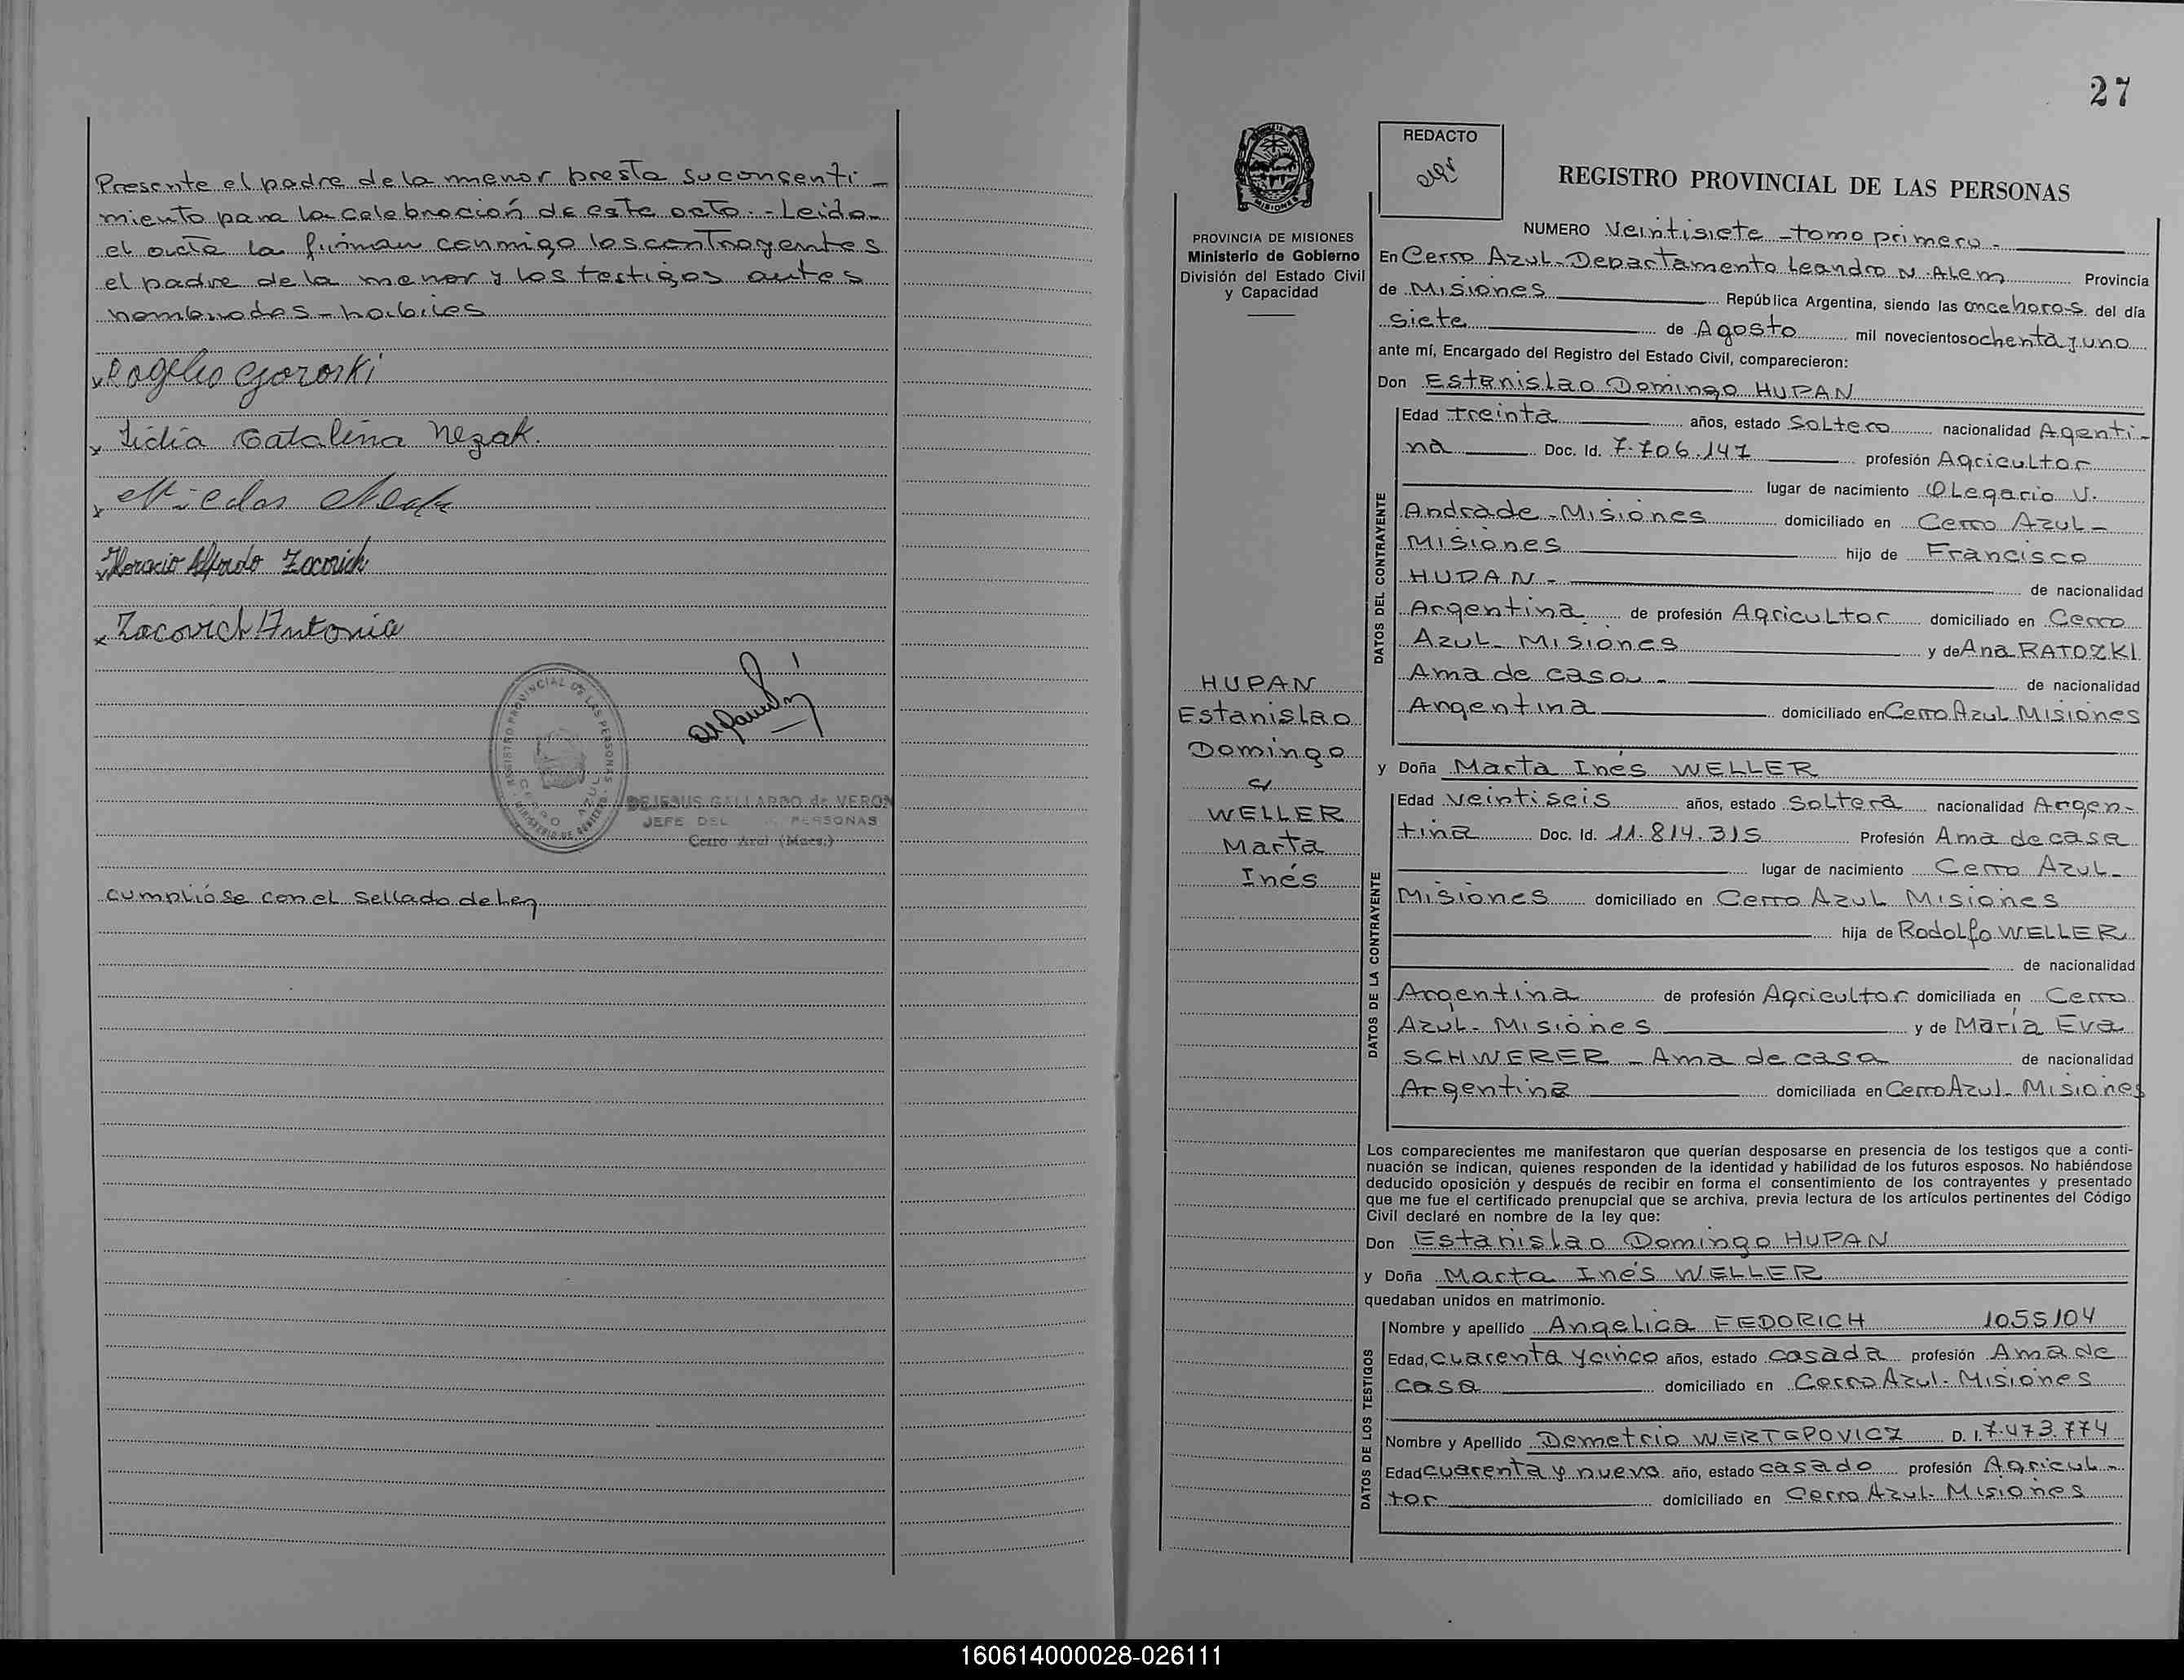 Presente el padre de la menor presta su consenti-
miento para la celebración de este acto.- Leida
el acta la firman conmigo los contrayentes
el padre de la menor y los testigos antes
nombrados - habiles
x Rogelio Gororki
x Lidia Catalina Nezak.
x Nicolas
x Horacio Alfredo Zacovich
x Zacovich Antonia
REGISTRO PROVINCIAL DE LAS PERSONAS
MINISTERIO DE GOBIERNO
CERRO AZUL
DEJESUS GALLARDO de VERON
JEFE DEL PERSONAS
Cerro Azul (Mnes.)
cumplióse con el sellado de Ley
27
REDACTO
REGISTRO PROVINCIAL DE LAS PERSONAS
MISIONES
PROVINCIA DE MISIONES
Ministerio de Gobierno
División del Estado Civil
y Capacidad
HUPAN
Estanislao
Domingo
c/
WELLER
Marta
Inés
NUMERO Veintisiete - tomo primero -
En Cerro Azul - Departamento Leandro N. Alem Provincia
de Misiones República Argentina, siendo las once horas del día
siete de Agosto mil novecientos ochenta y uno
ante mí, Encargado del Registro del Estado Civil, comparecieron:
Don Estanislao Domingo HUPAN
DATOS DEL CONTRAYENTE
Edad treinta años, estado Soltero nacionalidad Agenti-
na Doc. Id. 7.706.147 profesión Agricultor
lugar de nacimiento Olegario V.
Andrade - Misiones domiciliado en Cerro Azul -
Misiones hijo de Francisco
HUPAN - de nacionalidad
Argentina de profesión Agricultor domiciliado en Cerro
Azul - Misiones y de Ana RATOZKI
Ama de casa - de nacionalidad
Argentina domiciliado en Cerro Azul Misiones
y Doña Marta Inés WELLER
DATOS DE LA CONTRAYENTE
Edad veintiseis años, estado Soltera nacionalidad Argen-
tina Doc. Id. 11.814.315 Profesión Ama de casa
lugar de nacimiento Cerro Azul -
Misiones domiciliado en Cerro Azul Misiones
hija de Rodolfo WELLER
de nacionalidad
Argentina de profesión Agricultor domiciliada en Cerro
Azul - Misiones y de María Eva
SCHWERER - Ama de casa de nacionalidad
Argentina domiciliada en Cerro Azul - Misiones
Los comparecientes me manifestaron que querían desposarse en presencia de los testigos que a conti-
nuación se indican, quienes responden de la identidad y habilidad de los futuros esposos. No habiéndose
deducido oposición y después de recibir en forma el consentimiento de los contrayentes y presentado
que me fue el certificado prenupcial que se archiva, previa lectura de los artículos pertinentes del Código
Civil declaré en nombre de la ley que:
Don Estanislao Domingo HUPAN
y Doña Marta Inés WELLER
quedaban unidos en matrimonio.
DATOS DE LOS TESTIGOS
Nombre y apellido Angelica FEDORICH 1055104
Edad, cuarenta y cinco años, estado casada profesión Ama de
casa domiciliado en Cerro Azul - Misiones
Nombre y Apellido Demetrio WERTEPOVICZ D. I. 7.473.774
Edad cuarenta y nueve año, estado casado profesión Agricul-
tor domiciliado en Cerro Azul - Misiones
160614000028-026111